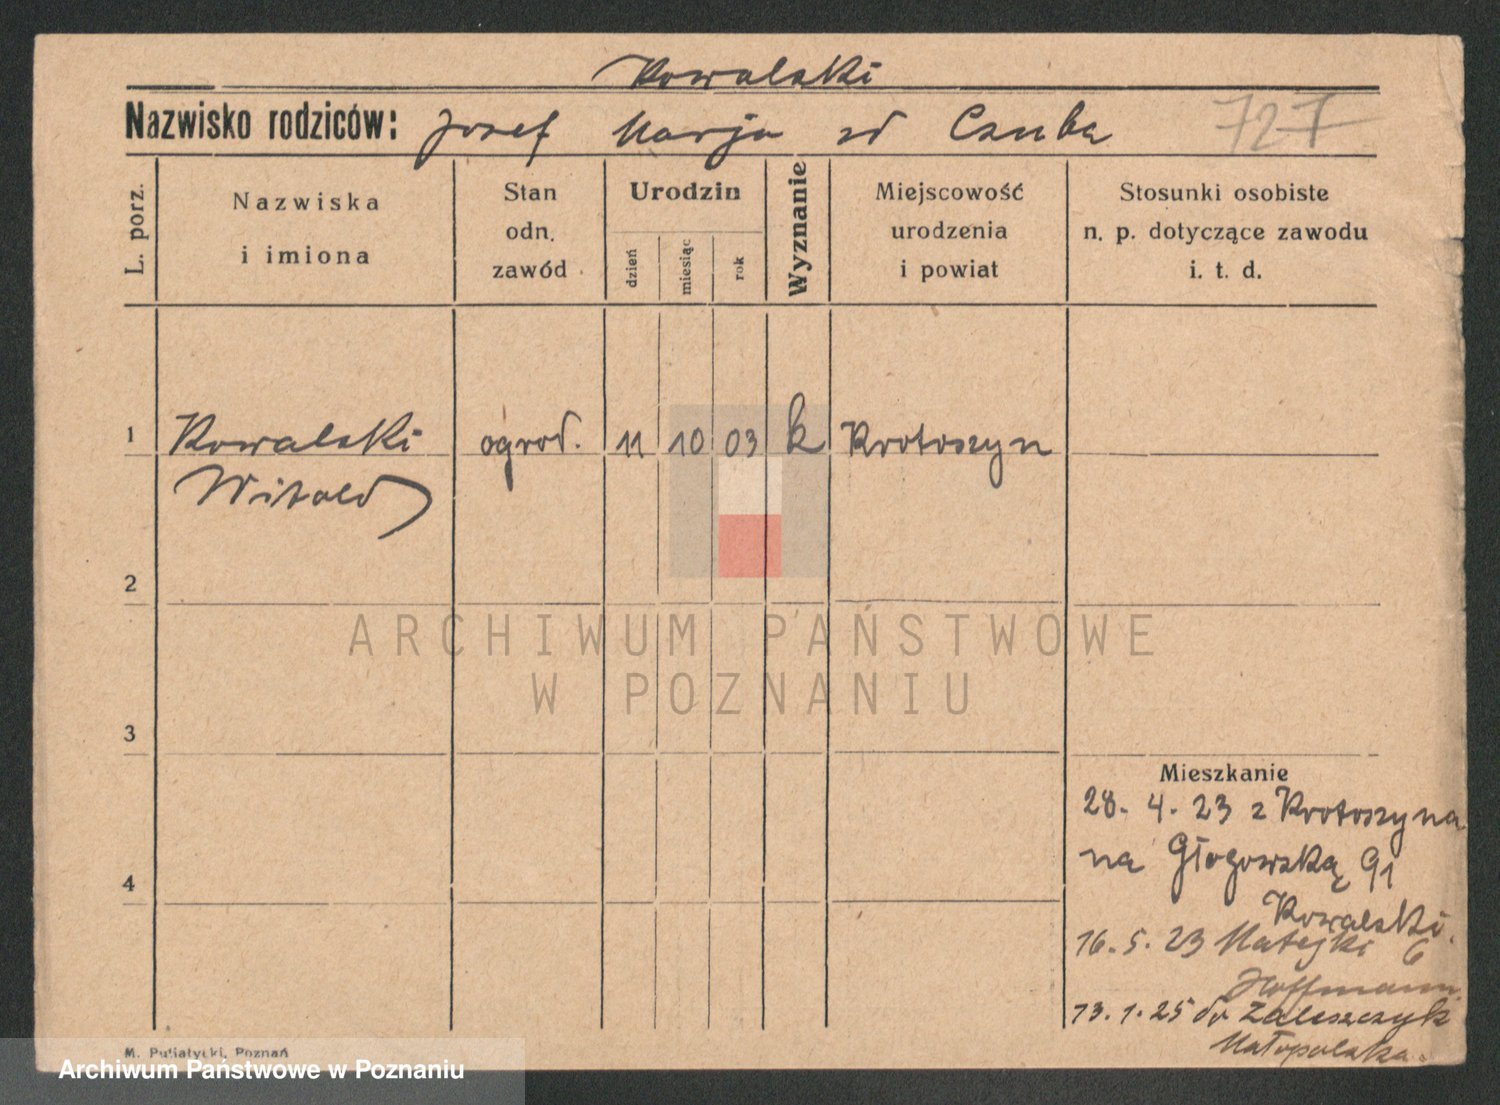 Kowalski
Nazwisko rodziców: Josef Marja zd Czuba 727
L. porz.
Nazwiska i imiona
Stan odn. zawód
Urodzin
dzień
miesiąc
rok
Wyznanie
Miejscowość urodzenia i powiat
Stosunki osobiste n. p. dotyczące zawodu i. t. d.
1 Kowalski ogrod. 11 10 03 k Krotoszyn
Witold
2
ARCHIWUM PAŃSTWOWE
W POZNANIU
3
Mieszkanie
28. 4. 23 z Krotoszyna
na Głogowską 91
4
Kowalski.
16. 5. 23 Matejki 6
Hoffmann
13. 1. 25 do Zaleszczyk
Małopolska.
M. Putiatycki, Poznań
Archiwum Państwowe w Poznaniu